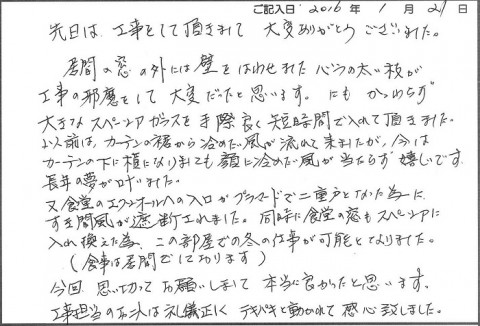 ご記入日 2016年 1月 21日
先日は、工事をして頂きまして 大変ありがとうございました。
居間の窓の外には壁をはわせたバラの太い枝が
工事の邪魔をして大変だったと思います。にもかかわらず
大きなスペーシアガラスを手際良く短時間で入れて頂きました。
以前は、カーテンの裾から冷めたい風が流れて来ましたが、今は
カーテンの下に横になりましても顔に冷めたい風が当たらず嬉しいです。
長年の夢が叶いました。
又食堂の入口がプラマードで二重戸となった為に
すき間風が遮断されました。同時に食堂の窓もスペーシアに
入れ換えた為、この部屋での冬の仕事が可能となりました。
(食事は居間でしております)
今回、思い切ってお願いしまして 本当に良かったと思います。
工事担当のお二人は礼儀正しく テキパキと動かれて感心致しました。